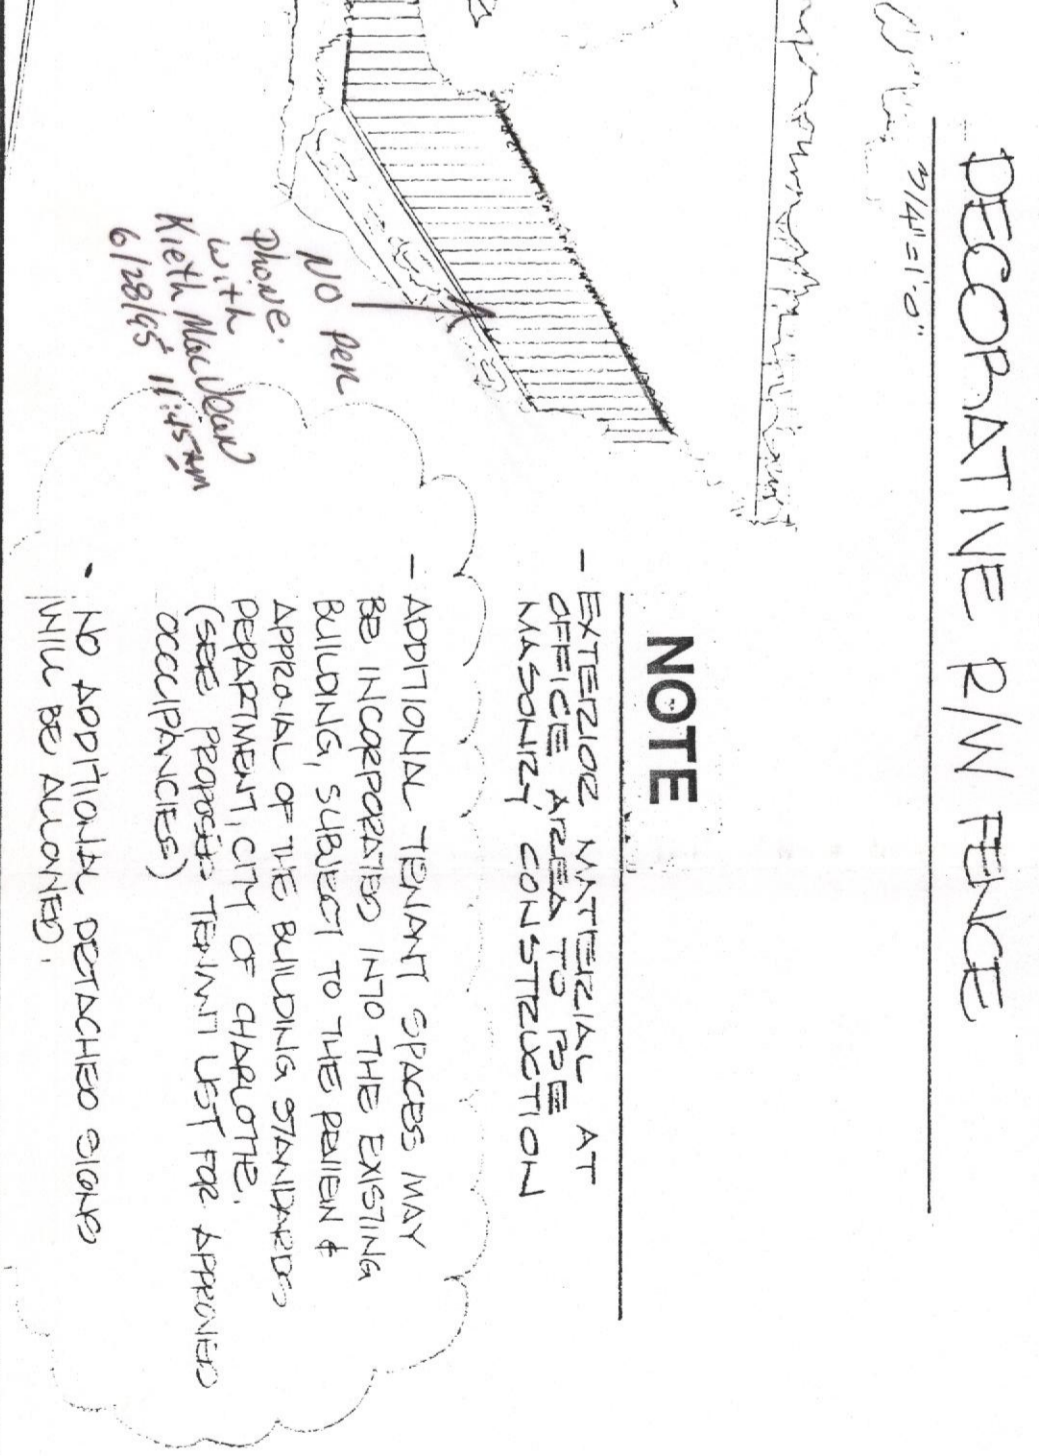 DECORATIVE R/W FENCE
3/4"=1'-0"
NOTE
- EXTERIOR MATERIAL AT
OFFICE AREA TO BE
MASONRY CONSTRUCTION
- ADDITIONAL TENANT SPACES MAY
BE INCORPORATED INTO THE EXISTING
BUILDING, SUBJECT TO THE REVIEW &
APPROVAL OF THE BUILDING STANDARDS
DEPARTMENT, CITY OF CHARLOTTE.
(SEE PROPOSED TENANT LIST FOR APPROVED
OCCUPANCIES)
• NO ADDITIONAL DETACHED SIGNS
WILL BE ALLOWED.
NO per
phone.
with
Kieth MacVean
6/28/95 11:45 AM